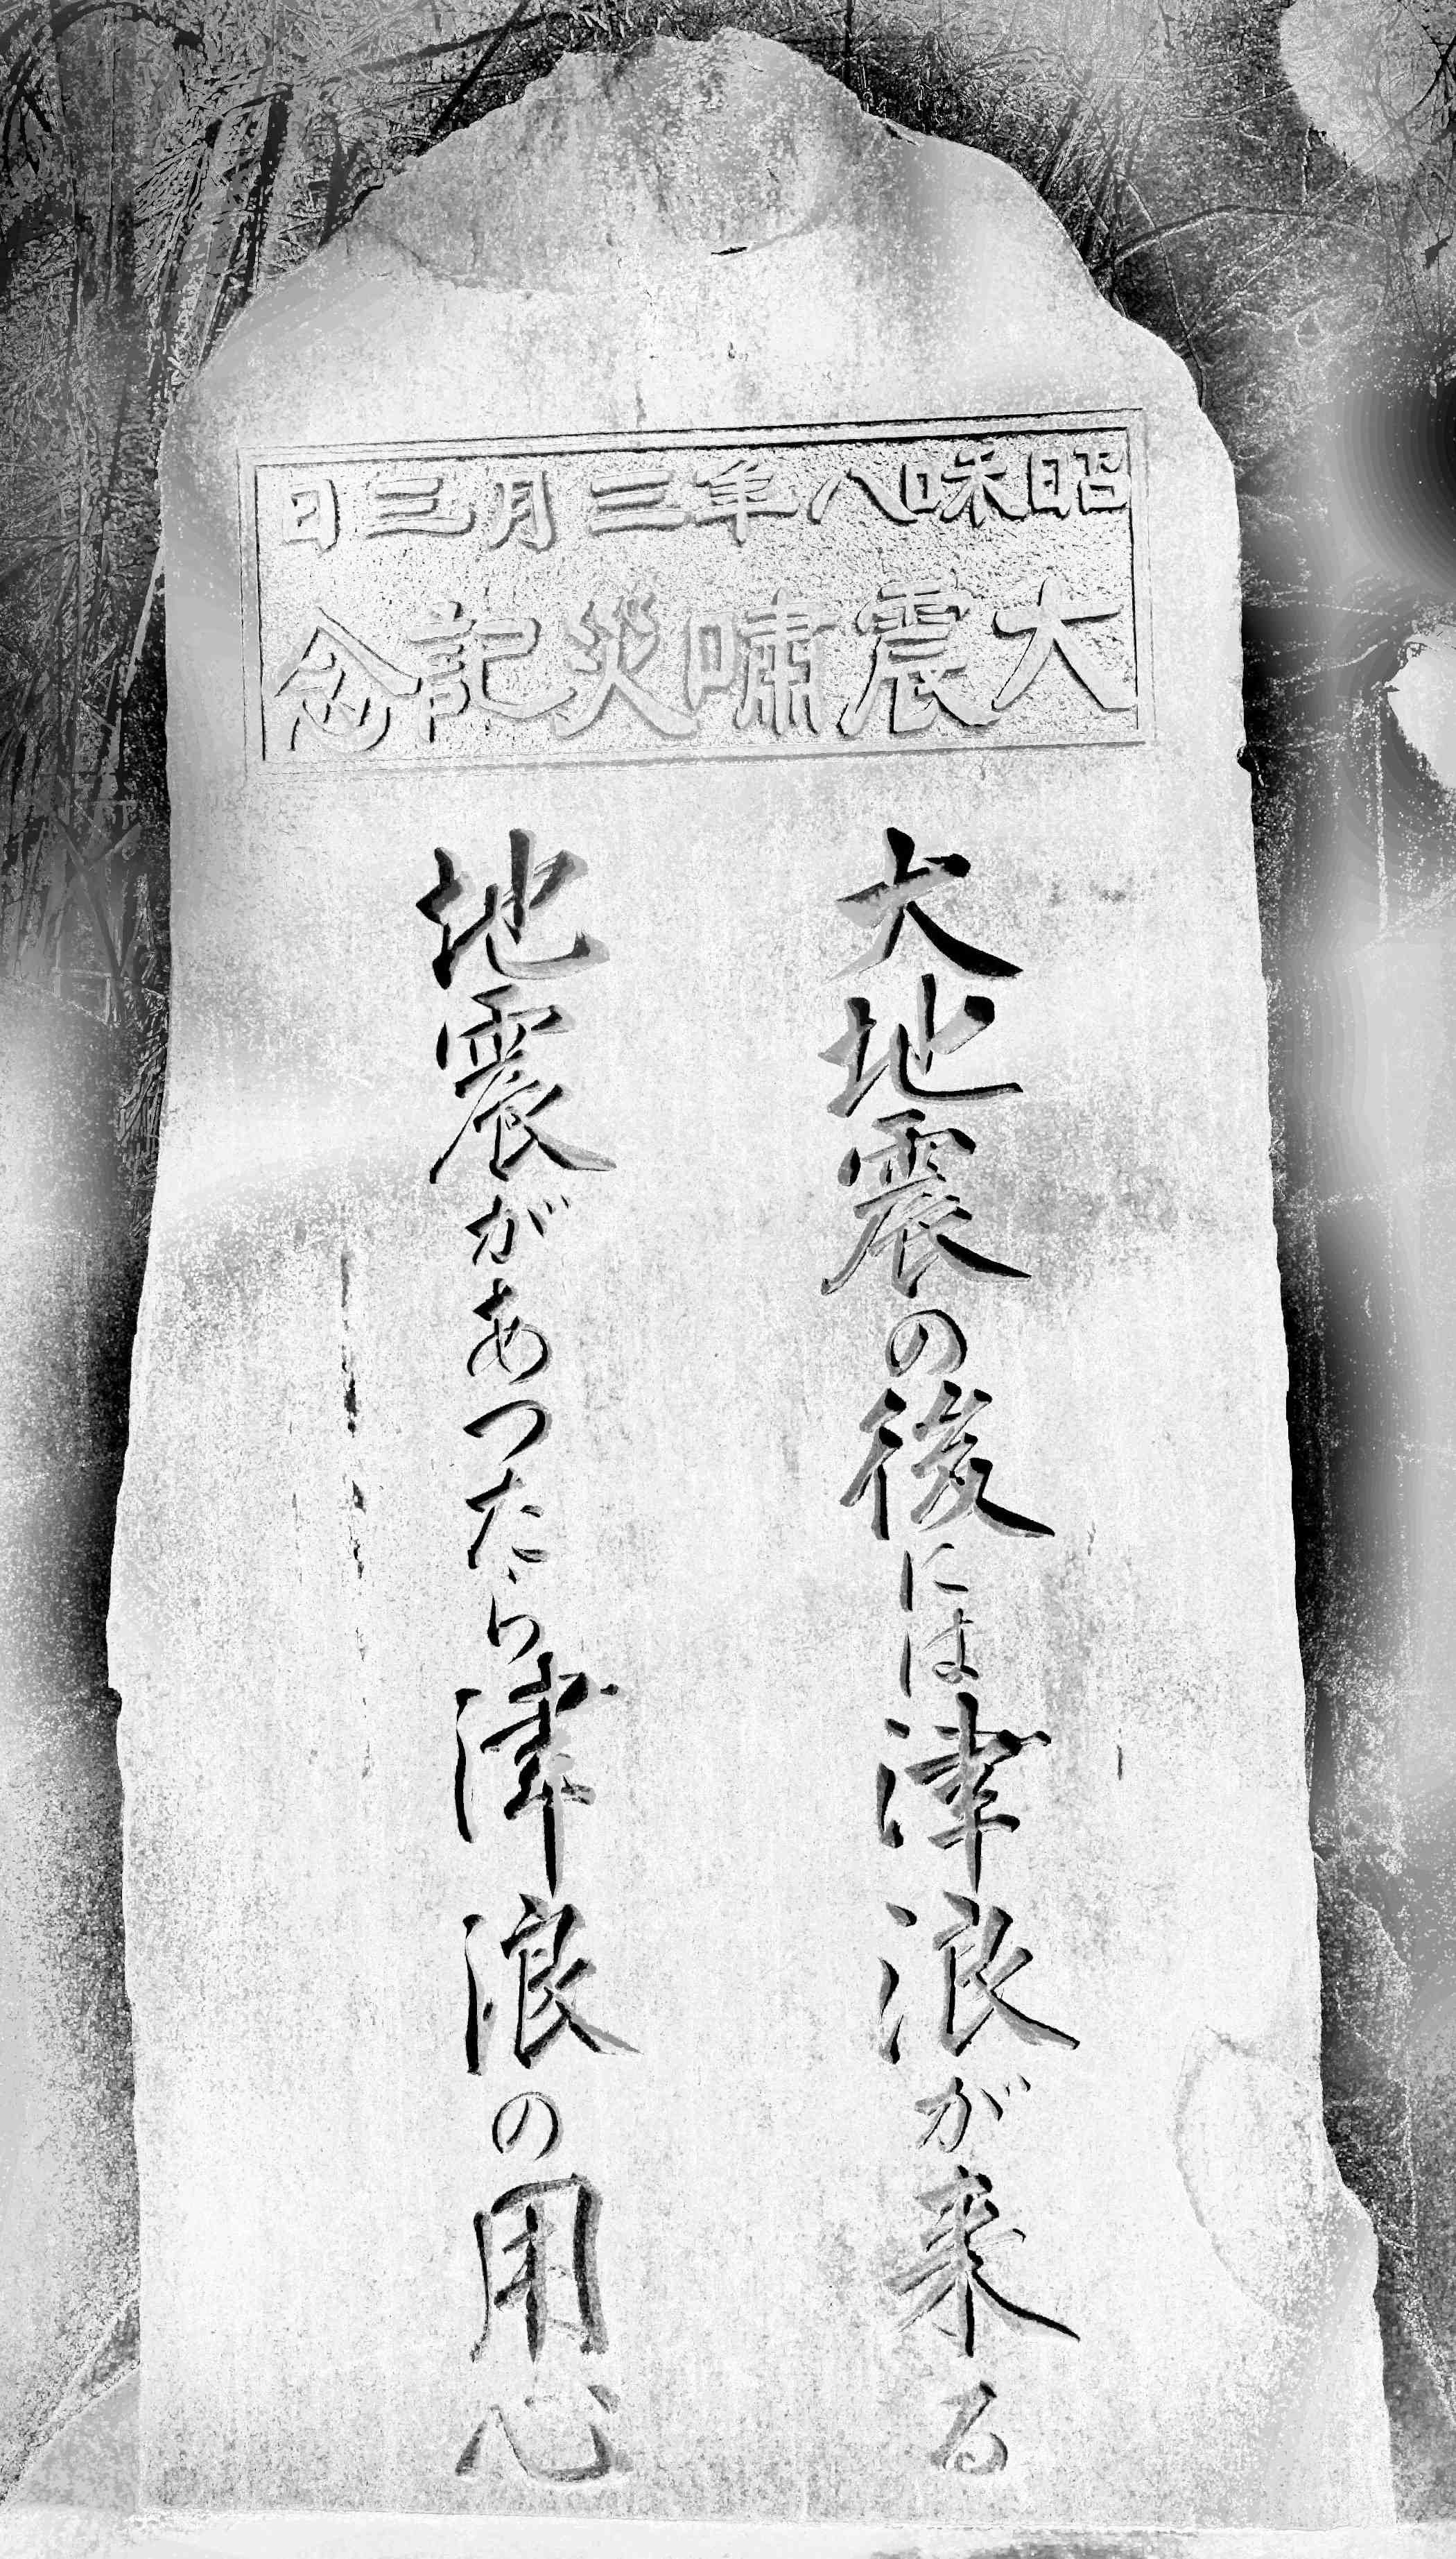 昭和八年三月三日
大震嘯災記念
大地震の後には津浪が来る
地震があつたら津浪の用心